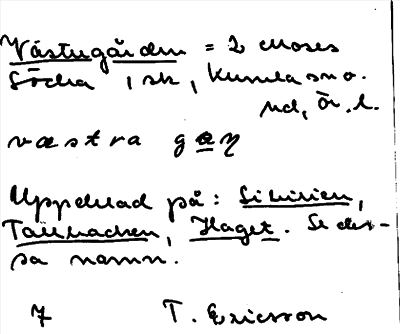 Västergården = 2 moses
Södra 1 sk, Kumla sn o.
hd, Ör. l.
væstra gaɳ
Uppdelad på: Sibirien,
Tallbacken, Haget. Se des-
sa namn.
7 T. Ericsson